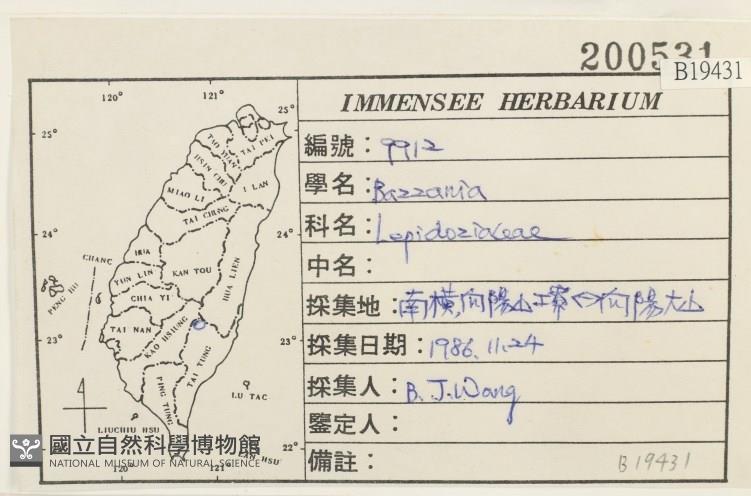 200531
B19431
IMMENSEE HERBARIUM
編號：9912
學名：Bazzania
科名：Lepidoziaceae
中名：
採集地：南橫,向陽山工寮⇔向陽大山
採集日期：1986.11.24
採集人：B.J.Wang
鑒定人：
備註：
B19431
120° 121°
25° 25°
TAI PEI
TAO YUAN
HSIN CHU
I LAN
MIAO LI
TAI CHUNG
24° 24°
CHANG HUA
NAN TOU
HUA LIEN
YUN LIN
PENG HU
CHIA YI
TAI NAN
KAO HSIUNG
23° 23°
TAI TUNG
PING TUNG
LU TAO
LIUCHIU HSU
LAN HSU
22°
120° 121°
國立自然科學博物館
NATIONAL MUSEUM OF NATURAL SCIENCE